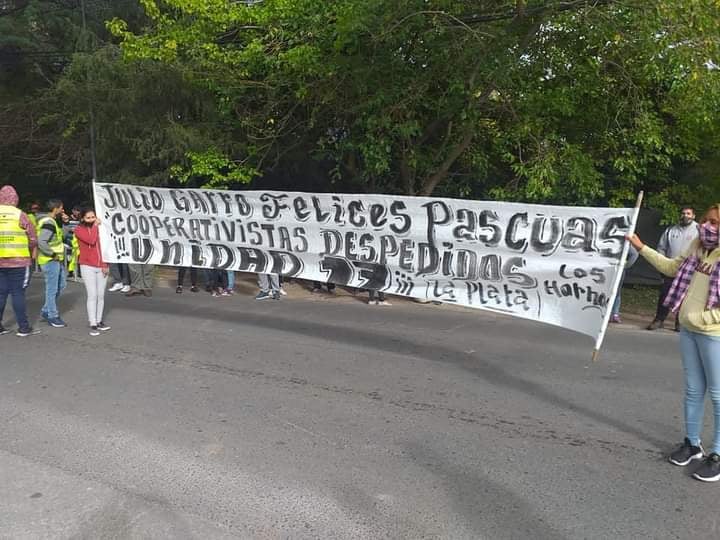 JULIO GARRO FELICES PASCUAS
COOPERATIVISTAS DESPEDIDOS
¡¡¡UNIDAD 77!!! LA PLATA
LOS